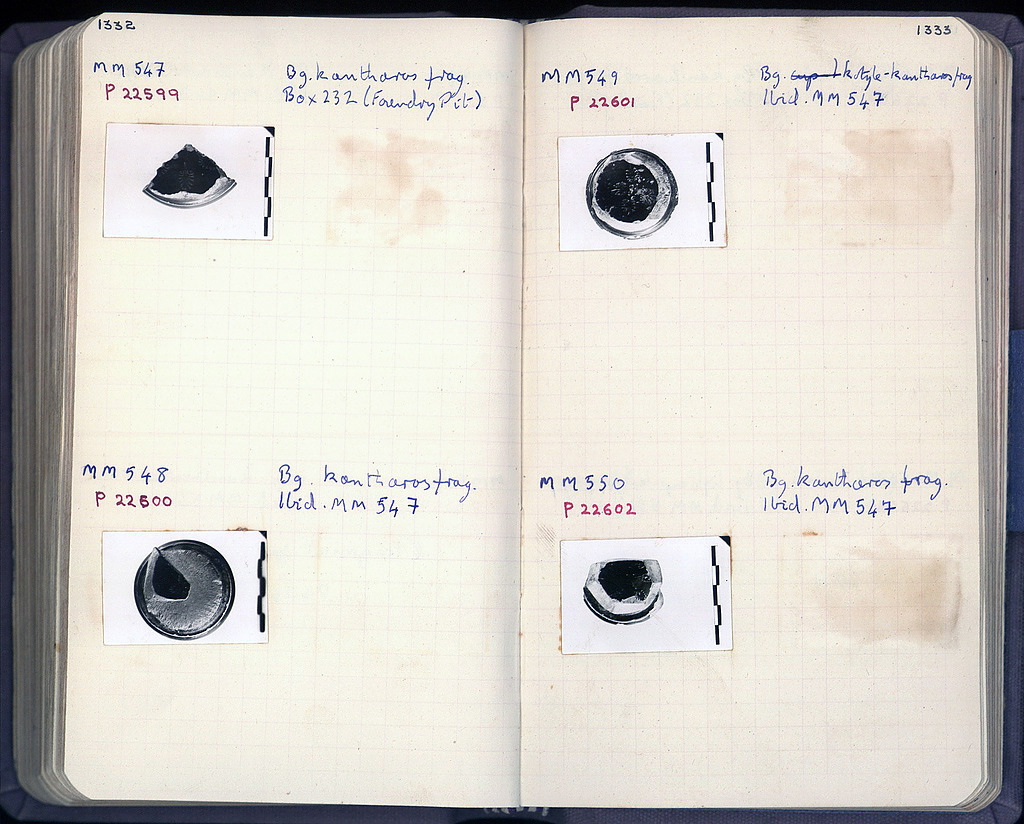 1332
MM 547
P 22599
Bg. kantharos frag.
Box 232 (Foundry Pit)
MM 548
P 22600
Bg. kantharos frag.
Ibid. MM 547
1333
MM 549
P 22601
Bg. cup kotyle-kantharos frag
Ibid. MM 547
MM 550
P 22602
Bg. kantharos frag.
Ibid. MM 547